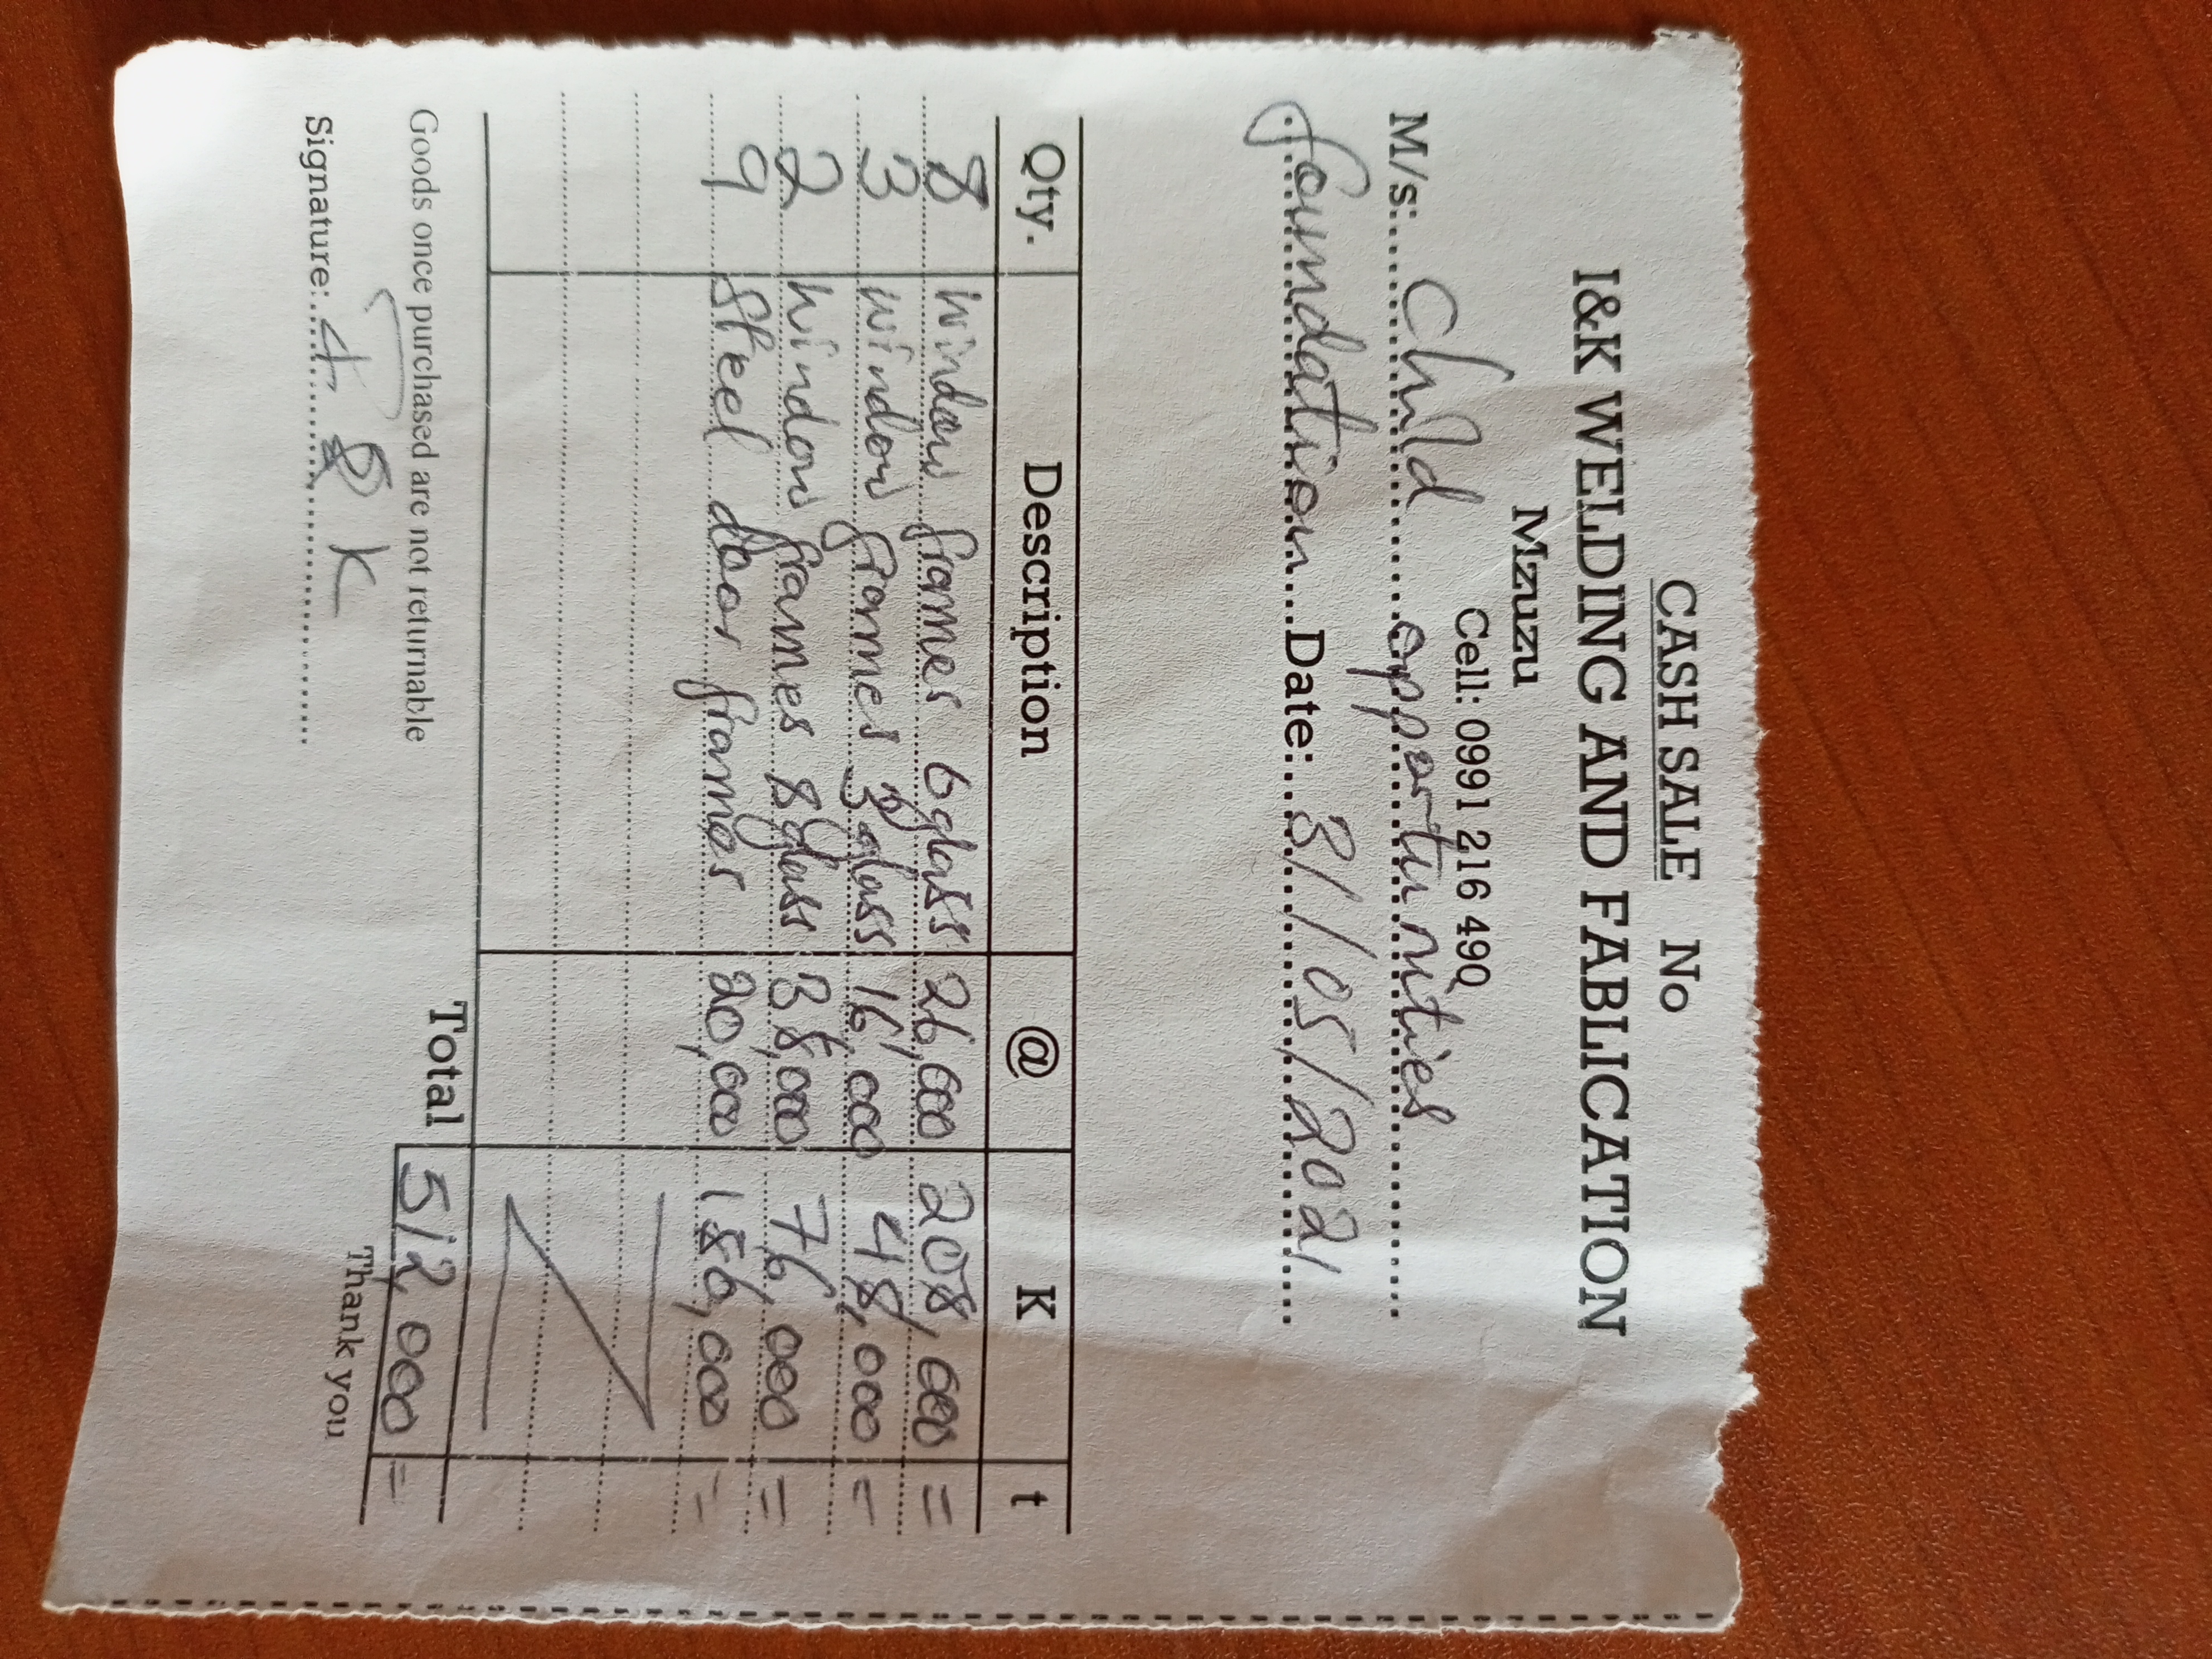 CASH SALE No
I&K WELDING AND FABLICATION
Mzuzu
Cell: 0991 216 490
M/s: Child opportunities
foundation Date: 31/05/2021
Qty. Description @ K t
8 window frames 6 glass 26,000 208,000 =
3 window frames 3 glass 16,000 48,000 =
2 window frames 8 glass 38,000 76,000 =
9 Steel door frames 20,000 180,000 =
Total 512,000 =
Goods once purchased are not returnable
Thank you
Signature: